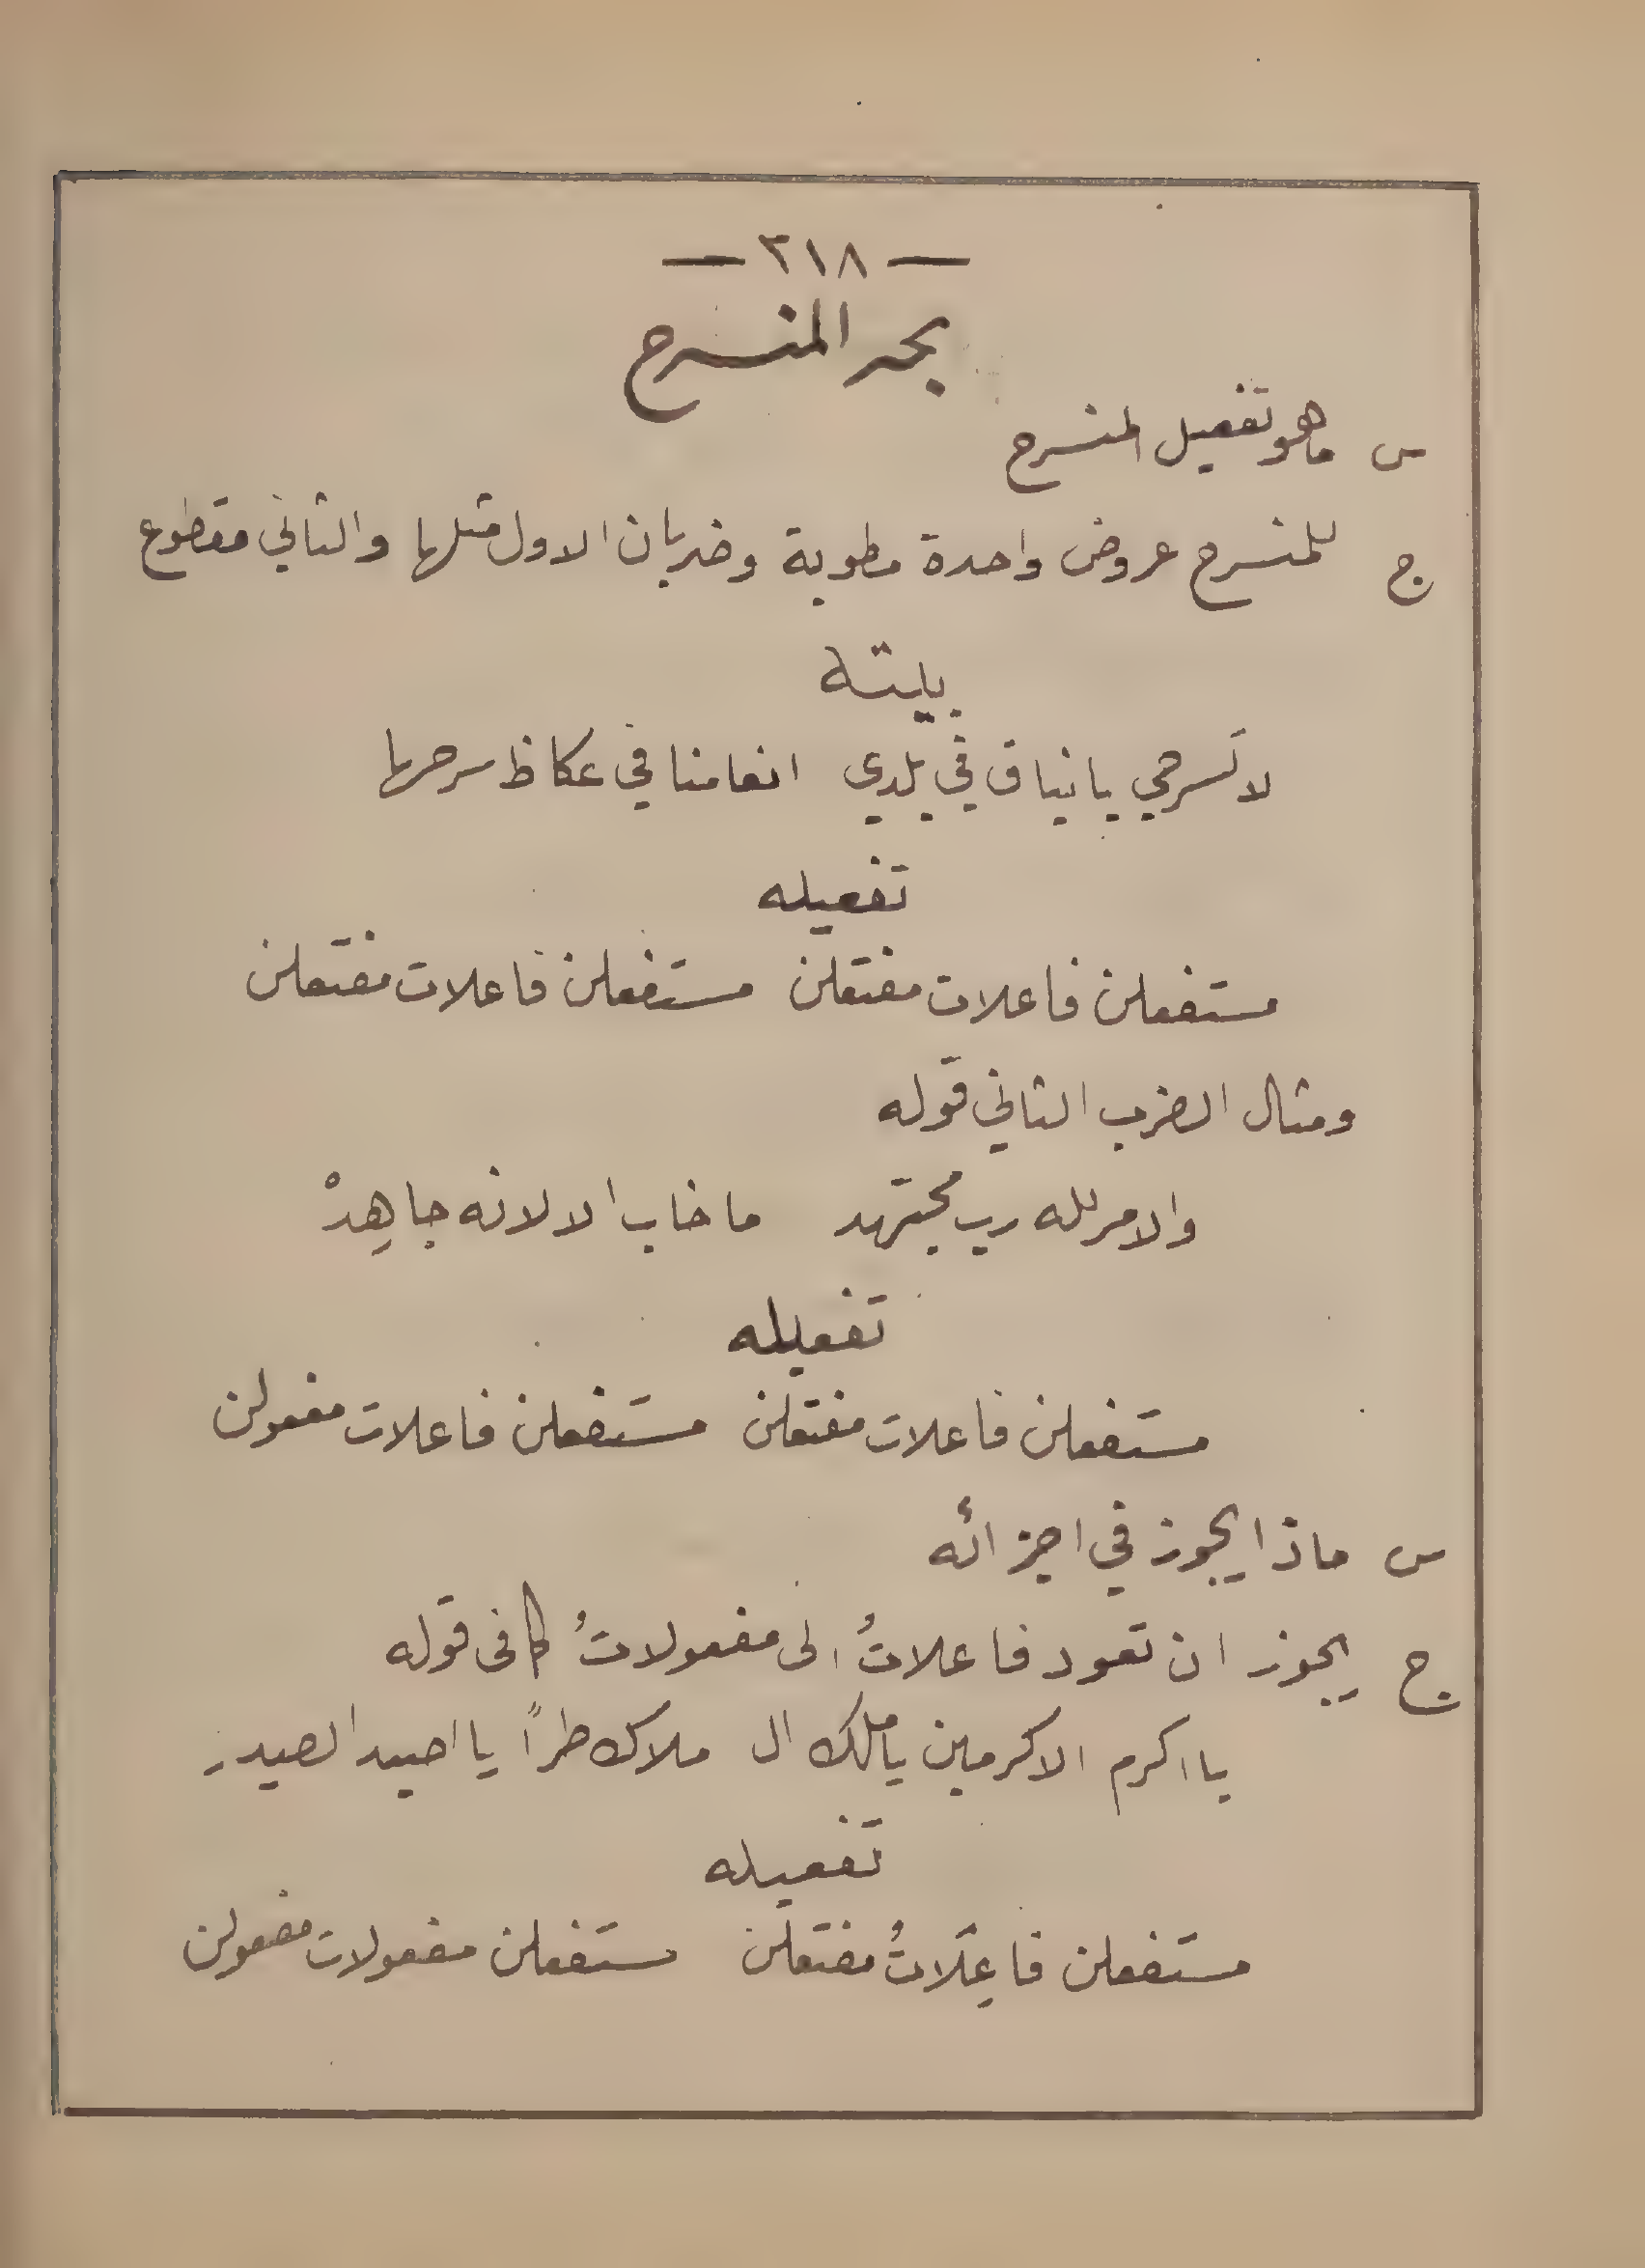 — ٣١٨ —
بحر المنسرح
س ما هو تفعيل المنسرح
ج للمنسرح عروض واحدة مطوية وضربان الاول مثلها والثاني مقطوع
بيته
لا تسرحي يا نياق في بلدي انعامنا في عكاظ سرحها
تفعيله
مستفعلن فاعلات مفتعلن مستفعلن فاعلات مفتعلن
ومثال الضرب الثاني قوله
والامر لله رب مجتهد ما خاب الا لانه جاهِدْ
تفعيله
مستفعلن فاعلات مفتعلن مستفعلن فاعلات مفعولن
س ماذا يجوز في اجزائه
ج يجوز ان تعود فاعلاتُ الى مفعولاتُ كما فى قوله
يا اكرم الاكرمين يا ملك ال ملاك طراً يا اصيد الصيد
تفعيله
مستفعلن فاعِلَاتُ مفتعلن مستفعلن مفعولات مفعولن